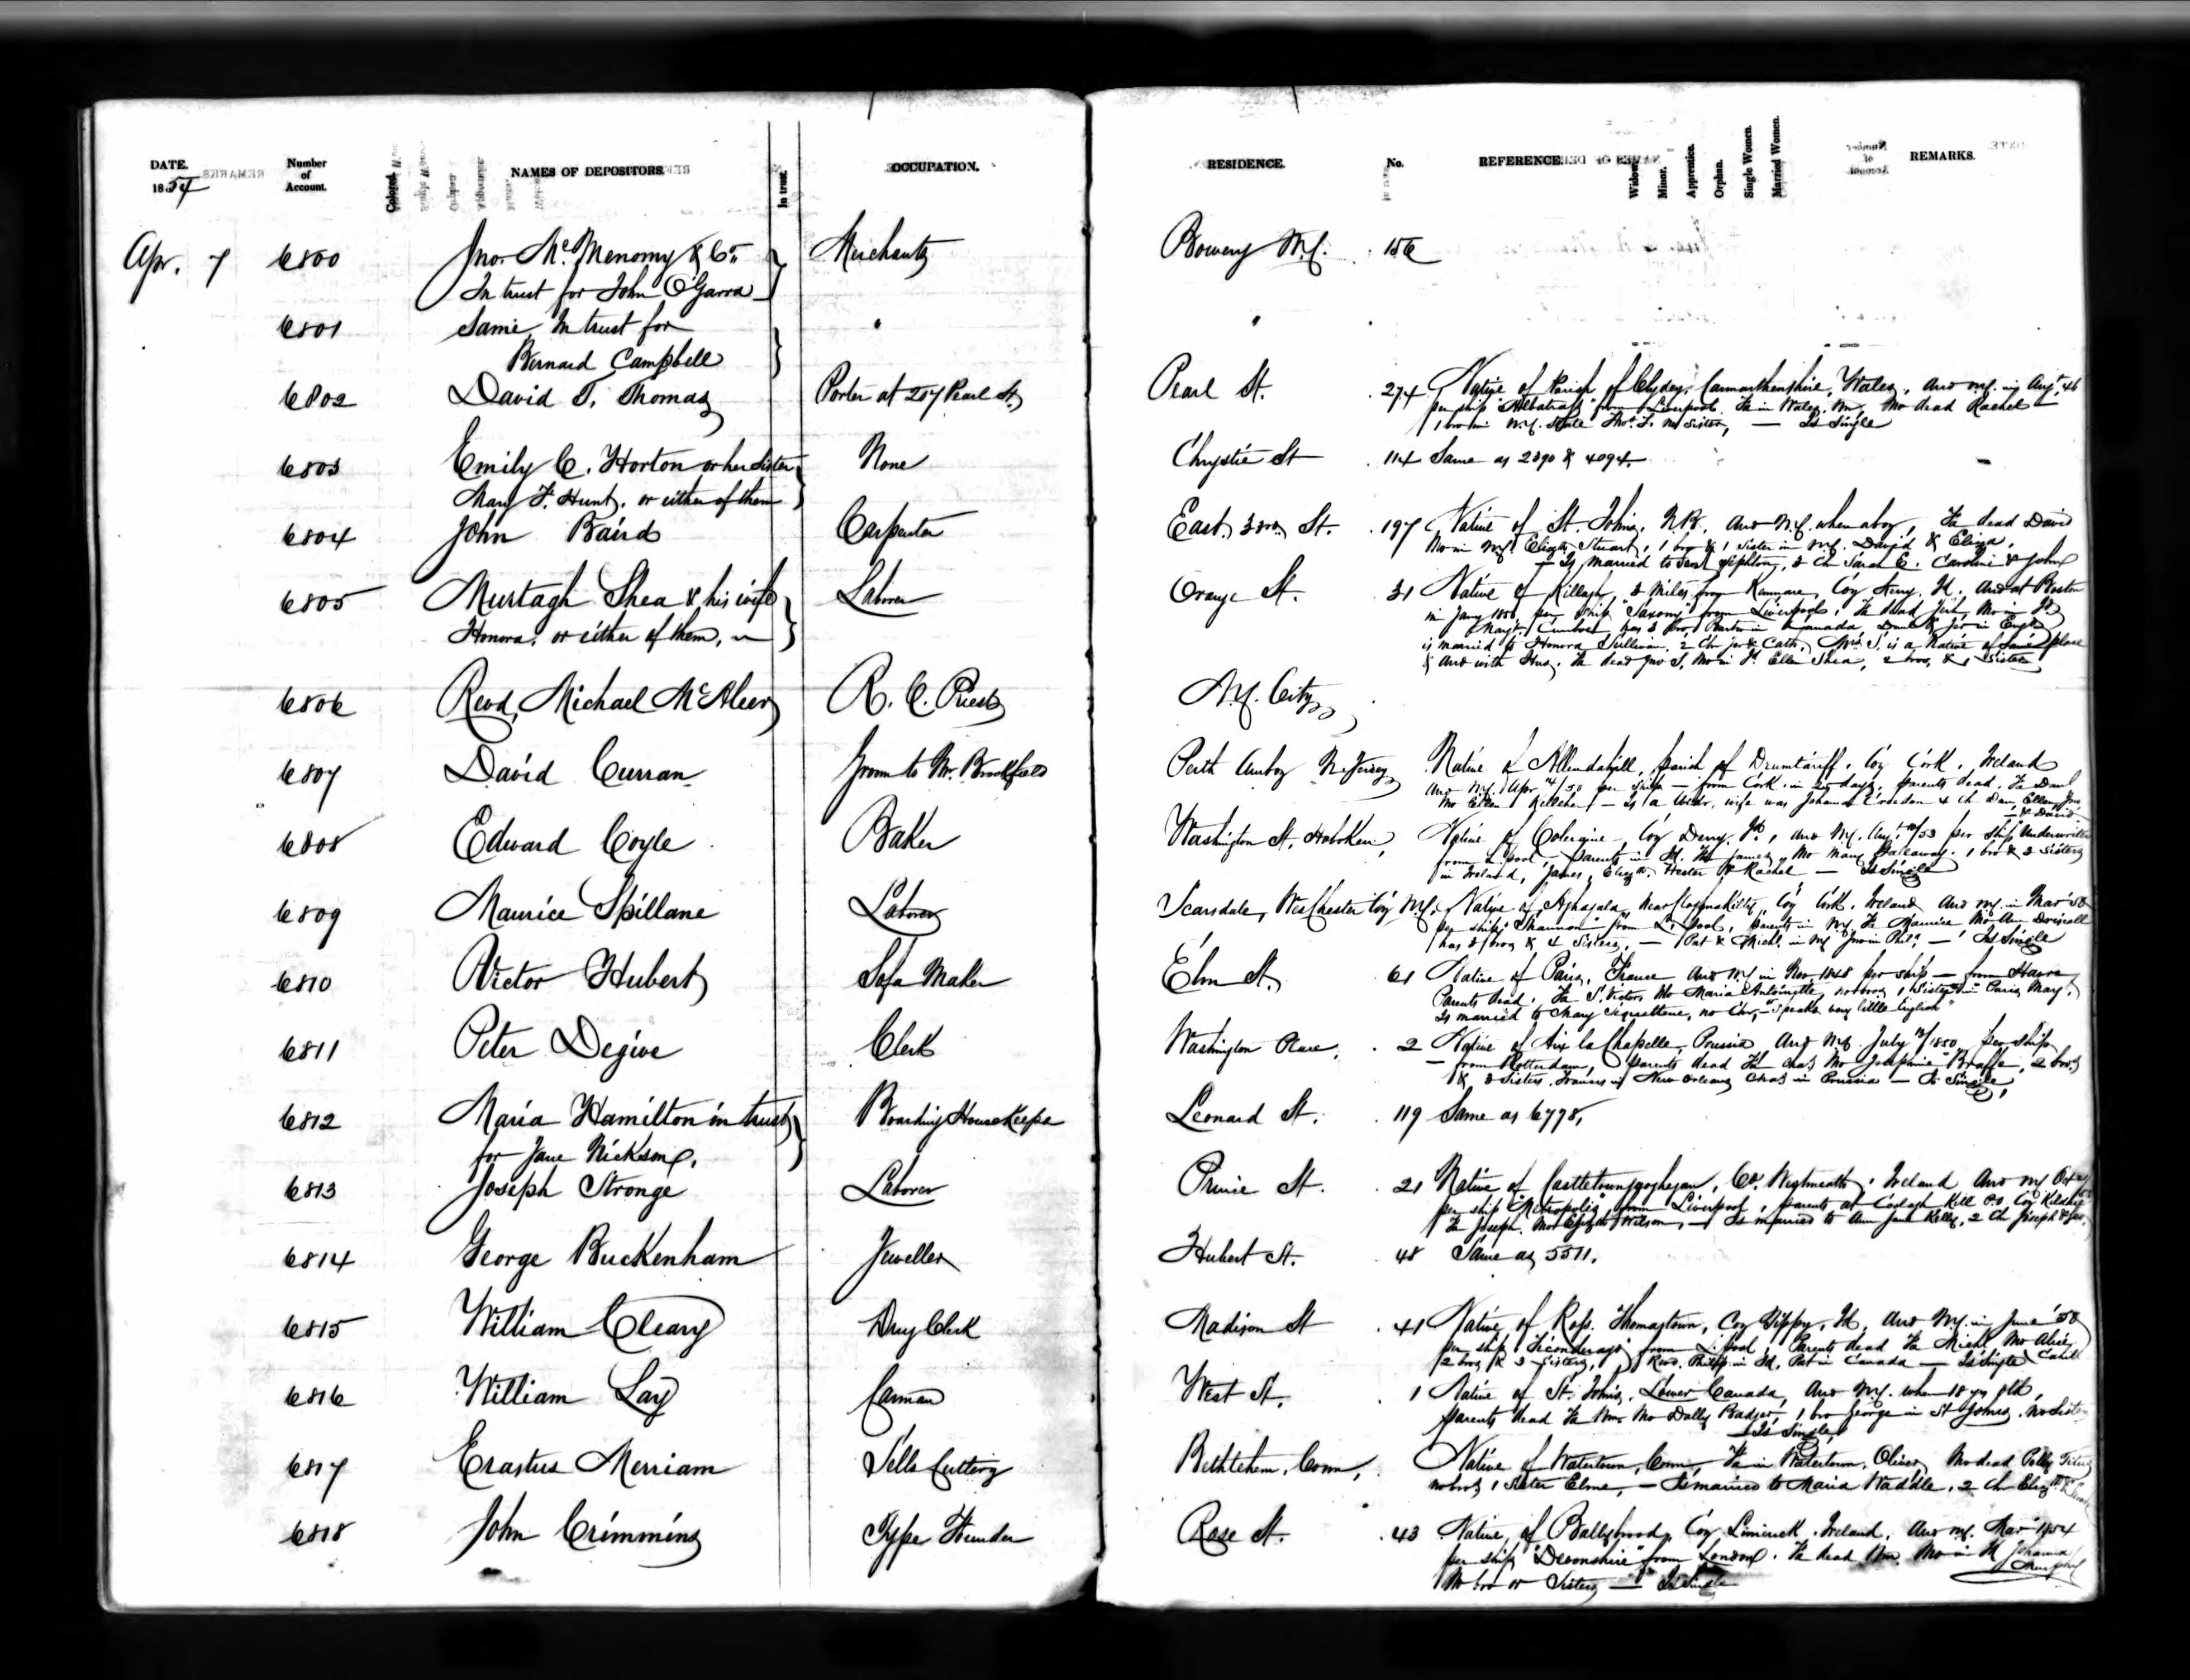 DATE.
1854
Number
of
Account.
Colored.
NAMES OF DEPOSITORS.
In trust.
OCCUPATION.
RESIDENCE.
No.
REFERENCE.
Widow.
Minor.
Apprentice.
Orphan.
Single Women.
Married Women.
REMARKS.
Apr. 7 6800 Jno. McMenomy & Co. Merchants Bowery N.Y. 156
In trust for John O'Garra
6801 Same, In trust for " "
Bernard Campbell
6802 David T. Thomas Porter at 207 Pearl St. Pearl St. 274 Native of Parish of Clydey, Carmarthenshire, Wales, Arrd N.Y. in Augt. 46
per ship "Albatross" from Liverpool. Fa in Wales, Wm, Mo dead Rachel
1 bro in N.Y. State Thos. no Sister, — Is Single
6803 Emily C. Horton or her Sister None Chrystie St 114 Same as 2390 & 4094.
Mary F. Hunt, or either of them
6804 John Baird Carpenter East 3rd St. 197 Native of St. Johns, N.B. Arrd N.Y. when a boy, Fa dead David
Mo in N.Y. Elizth Stuart, 1 bro & 1 Sister in N.Y. David & Eliza,
— Is married to Sephton, 3 Ch Sarah E. Caroline & John
6805 Murtagh Shea & his wife Laborer Orange St. 31 Native of 3 Miles from Kenmare, Coy Kerry, Id. Arrd at Boston
Honora, or either of them,
in Jany 1850 per Ship "Saxony" from Liverpool, Fa dead Mo in Id
Mary has 3 bro, in Canada, & in Engd
is married to Honora Sullivan, 2 Chr & Cath. Mrs. S. is a Native of Same place
& Arrd with Hus, Fa dead Jno S, Mo in Id. Ellen Shea, 2 bros, & 1 Sister
6806 Revd. Michael McAleer R. C. Priest N.Y. City
6807 David Curran Groom to Mr. Brookfield Perth Amboy N. Jersey Native of Parish of Drumtariff, Coy Cork, Ireland
Arrd N.Y. Apr 14/50 per Ship — from Cork in days, parents dead, Fa Danl
Mo Ellen — Is a Widr, wife was Johanna 4 ch Dan, Ellen, Jno,
& David
6808 Edward Coyle Baker Washington St. Hoboken, Native of Coleraine, Coy Derry, Id, Arrd N.Y. Augt. /53 per Ship Underwriter
from L.pool, Parents in Id. Fa James, Mo Mary 1 bro & 3 Sisters
in Ireland, James, Elizth. Hester & Rachel — Is Single
6809 Maurice Spillane Laborer Scarsdale, WesChester Coy N.Y. Native of near Cloghnakilty, Coy Cork, Ireland Arrd N.Y. in Mar 50
per ship "Shannon" from L.pool, parents in N.Y. Fa Maurice Mo Ann Driscoll
has 3 bros & 4 Sisters, — Pat & Michl. in N.Y. Jno in Phila. — Is Single
6810 Victor Hubert Sofa Maker Elm St. 61 Native of Paris, France Arrd N.Y. in Nov. 1848 per ship — from Havre
Parents dead, Fa Victor, Mo Maria Antoinette, no bros, 1 Sister in Paris Mary,
Is married to Mary no Chr, — "Speaks very little English"
6811 Peter Degive Clerk Washington Place, 2 Native of Aix la Chapelle, Prussia Arrd N.Y. July /1850 per Ship
— from Rotterdam, parents dead Fa Chas Mo Josephine 2 bros
& 3 Sisters, Francis in New Orleans Chas in Prussia — Is Single,
6812 Maria Hamilton in trust Boarding House Keeper Leonard St. 119 Same as 6778,
for Jane Nickson.
6813 Joseph Stronge Laborer Prince St. 21 Native of Castletowngeoghegan, Co. Westmeath, Ireland Arrd N.Y. Oct
per ship "Metropolis" from Liverpool, parents at Kill P.O. Coy Kildare
Fa Joseph, Mo Elizth Wilson, — Is married to Ann Jane Kelly, 2 Ch Joseph &
6814 George Buckenham Jeweller Hubert St. 48 Same as 5511.
6815 William Cleary Dry Clerk Madison St 41 Native of Thomastown, Coy Tippy, Id, Arrd N.Y. in June '50
per ship "Ticonderoga" from L.pool, Parents dead Fa Michl Mo Alice
2 bros & 3 Sisters, Revd. Philip in Id, Pat in Canada — Is Single Cahill
6816 William Lay Carman West St. 1 Native of St. Johns, Lower Canada, Arrd N.Y. when 18 yrs old,
parents dead Fa Wm. Mo Dolly Badger, 1 bro George in St Johns, no Sister
— Is Single
6817 Erastus Merriam Sells Cutlery Bethlehem, Conn, Native of Watertown, Conn, Fa in Watertown, Oliver Mo dead Polly
no bros 1 Sister — Is married to Maria Waddle, 2 Chr Elizth &
6818 John Crimmins Type Founder Rose St. 43 Native of Ballybrood, Coy Limerick, Ireland, Arrd N.Y. Mar 1854
per ship "Devonshire" from London. Fa dead Wm. Mo in Id Johanna
Murphy
No bro or Sisters — Is Single